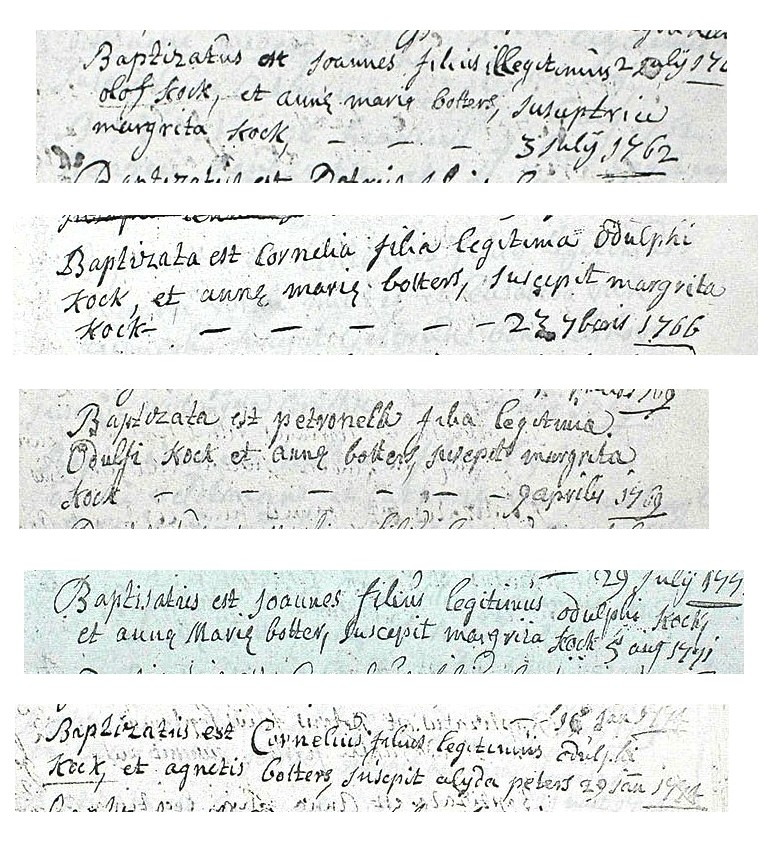 Baptizatus est Joannes filius illegitimus 2 July 176
olof Kock, et annę marię botters, Susceptrice
margrita Kock, — — — 3 July 1762
Baptizatus est
Baptizata est Cornelia filia legitima Odulphi
Kock, et annę marię botters, Suscepit margrita
Kock — — — — — 23 7bris 1766
Baptizata est petronella filia legitima
Odulfi Kock et annę botters, Suscepit margrita
Kock — — — — — — 9 aprilis 1769
29 July 177
Baptisatus est Joannes filius legitimus odulphi Kock,
et annę Marię botter, Suscepit margrita Kock 5 aug 1771
16 Jan 177
Baptizatus est Cornelius filius legitimus odulphi
Kock, et agnetis botters, Suscepit alyda peters 29 Jan